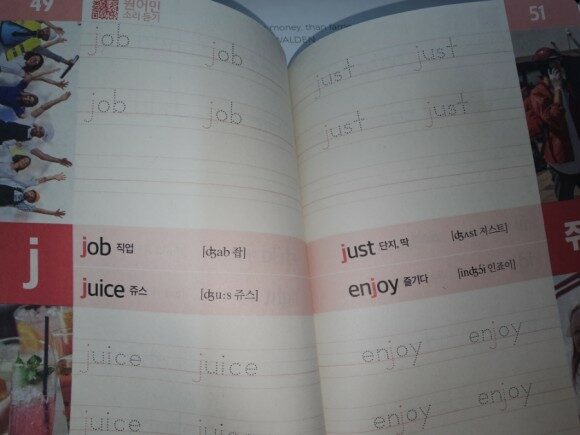 49
원어민
소리 듣기
job job
job job
j
job 직업 [ʤab 잡]
juice 쥬스 [ʤu:s 쥬스]
juice juice
juice juice
money, than
WALDEN
51
just just
just just
just 단지, 딱 [ʤʌst 저스트]
enjoy 즐기다 [inʤɔi 인죠이]
enjoy enjoy
enjoy enjoy